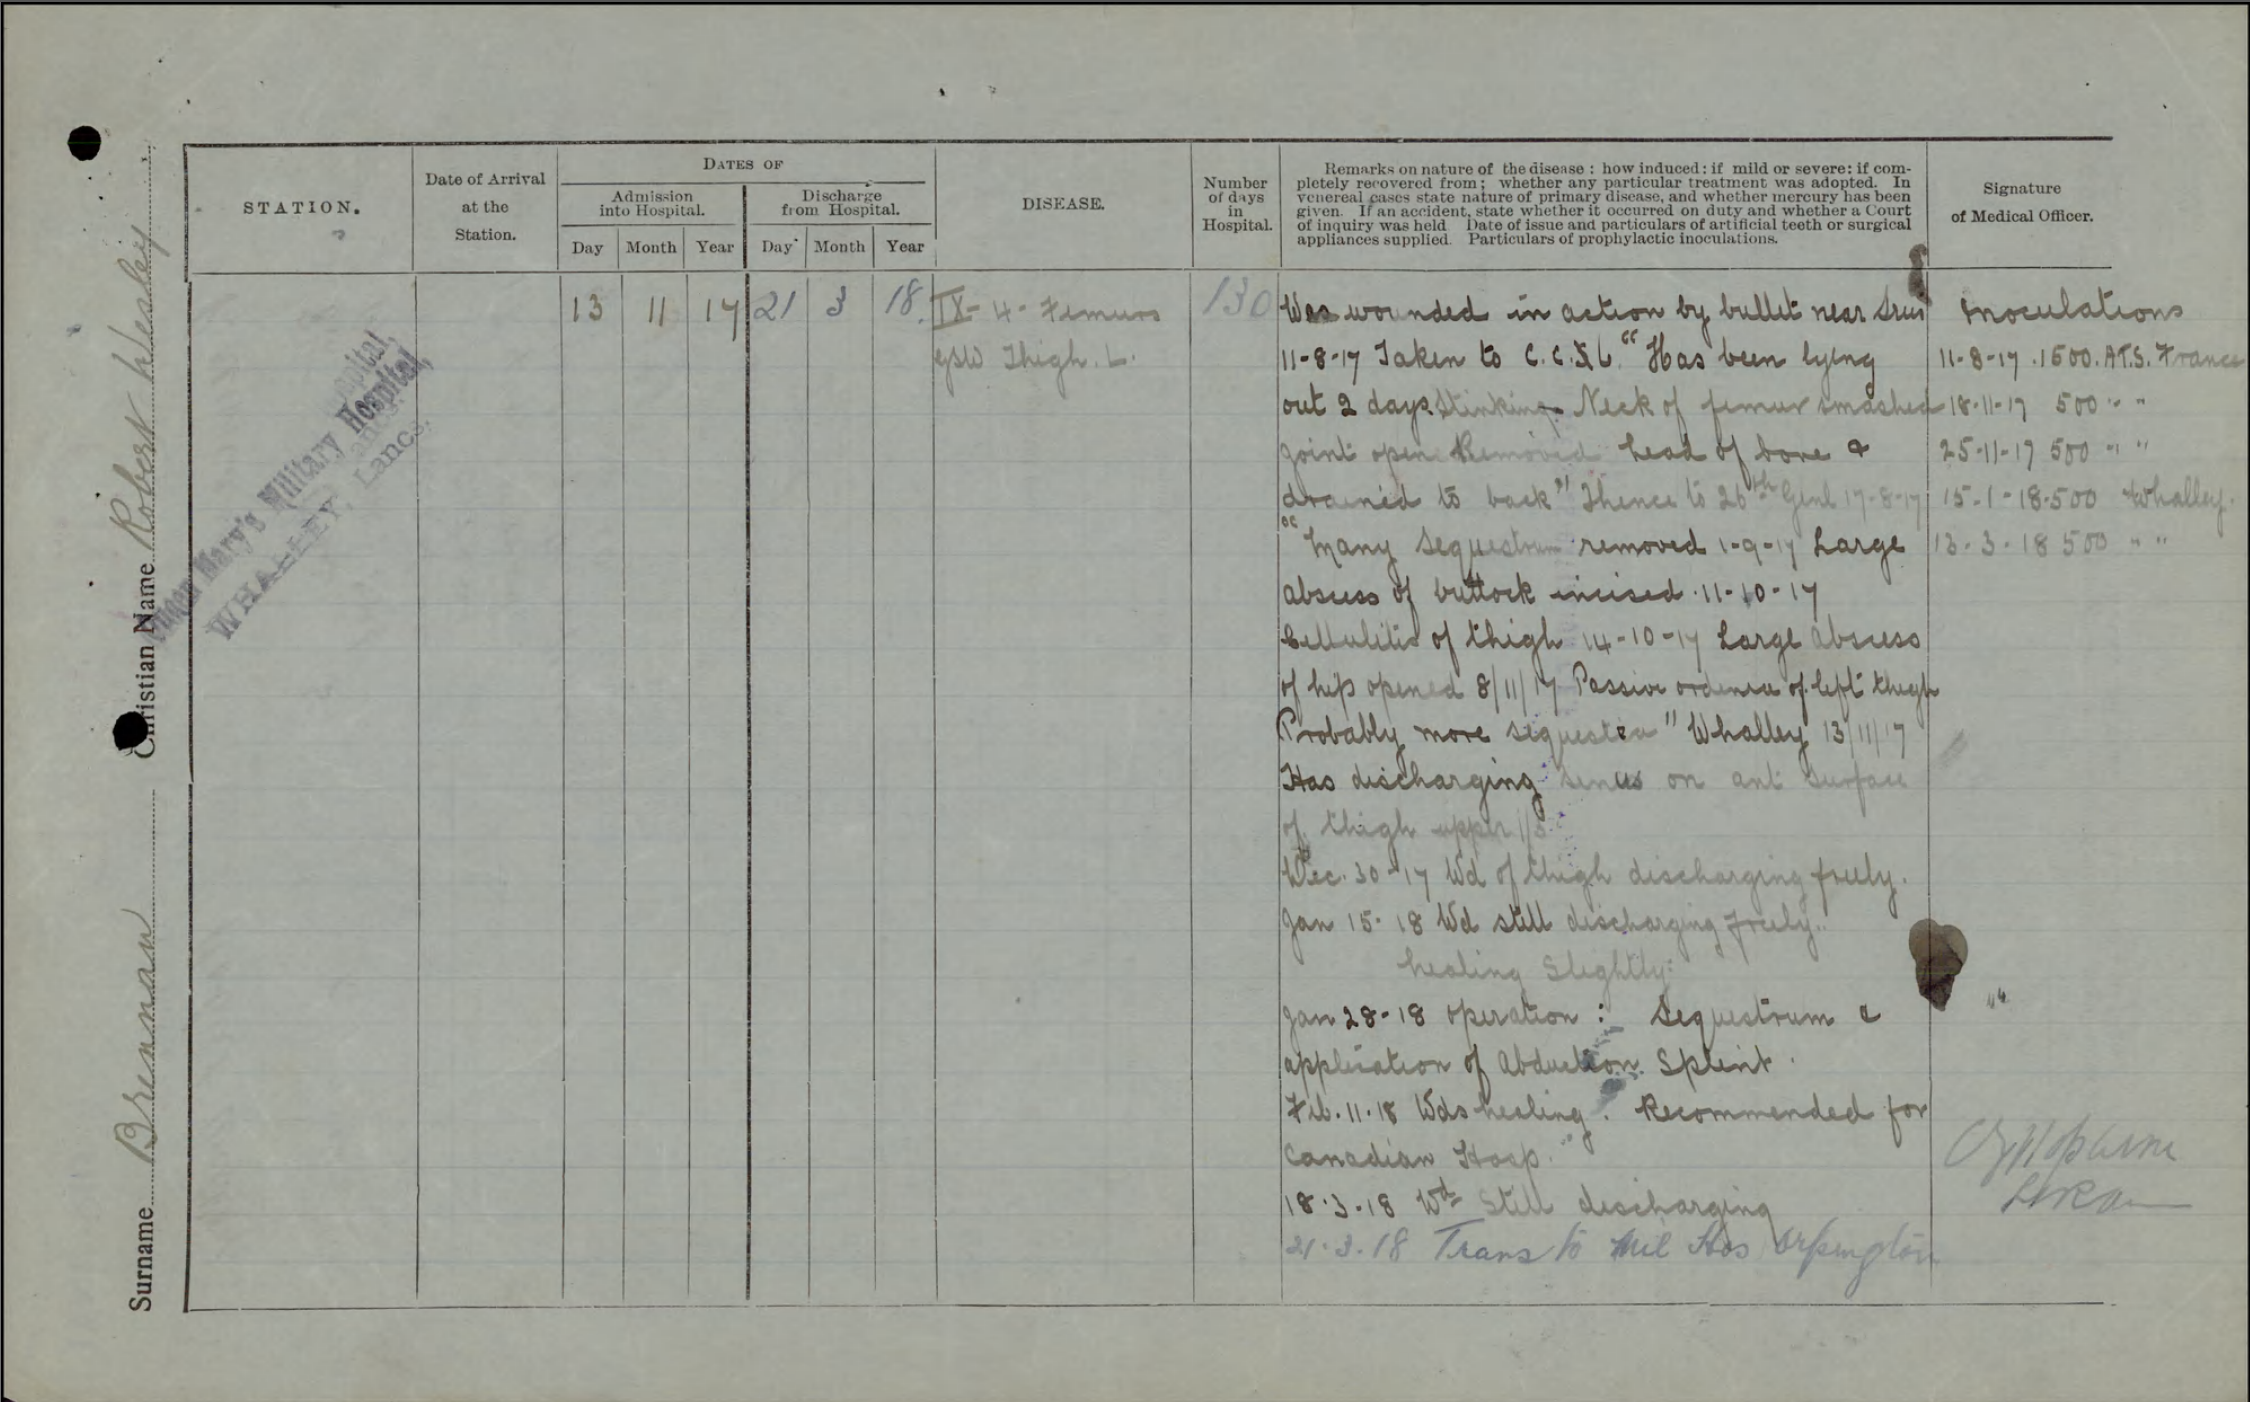 Surname Brennan Christian Name Robert Wesley
STATION.
Date of Arrival
at the
Station.
DATES OF
Admission
into Hospital.
Discharge
from Hospital.
Day Month Year Day Month Year
DISEASE.
Number
of days
in
Hospital.
Remarks on nature of the disease : how induced : if mild or severe : if com-
pletely recovered from ; whether any particular treatment was adopted. In
venereal cases state nature of primary disease, and whether mercury has been
given. If an accident, state whether it occurred on duty and whether a Court
of inquiry was held Date of issue and particulars of artificial teeth or surgical
appliances supplied. Particulars of prophylactic inoculations.
Signature
of Medical Officer.
Queen Mary's Military Hospital,
WHALLEY, Lancs.
13 11 17 21 3 18
IX - 4 - Femurs
GSW Thigh. L.
130
Was wounded in action by bullet near
11-8-17 Taken to C.C.S. "Has been lying
out 2 days Stinking. Neck of femur smashed
joint open Removed head of bone &
drained to back" Thence to 26th Genl 17-8-17
"Many sequestrum removed 1-9-17 Large
abscess of buttock incised 11-10-17
Cellulitis of thigh 14-10-17 Large abscess
of hip opened 8/11/17 Passive of left thigh
Probably more sequestra" Whalley 13/11/17
Has discharging sinus on ant surface
of thigh upper 1/3
Dec. 30-17 Wd of thigh discharging freely.
Jan 15-18 Wd still discharging freely.
healing slightly
Jan 28-18 operation : Sequestrum &
application of Abduction Splint.
Feb. 11.18 Wds healing. Recommended for
Canadian Hosp."
18.3.18 Wd still discharging
21.3.18 Trans to Mil Hos Orpington
Inoculations
11-8-17 .1500. A.T.S. France
18-11-17 500 " "
25-11-17 500 " "
15-1-18-500 Whalley.
13-3-18 500 " "